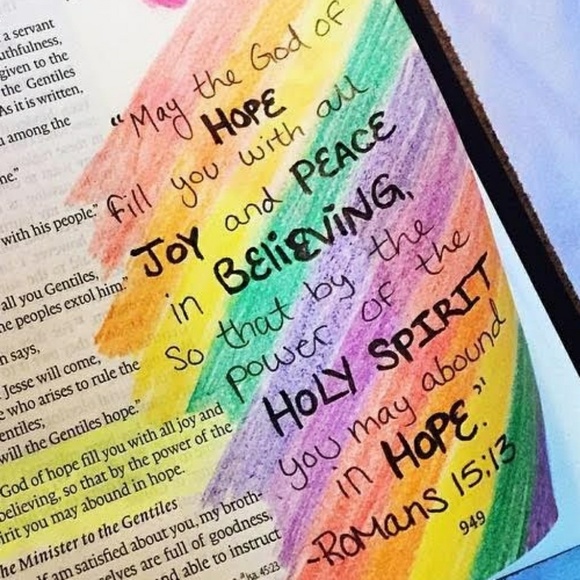 a servant
uthfulness,
given to the
the Gentiles
As it is written,
u among the
ne."
with his people."
all you Gentiles,
he peoples extol him."
n says,
Jesse will come,
e who arises to rule the
entiles;
will the Gentiles hope."
God of hope fill you with all joy and
believing, so that by the power of the
irit you may abound in hope.
he Minister to the Gentiles
f am satisfied about you, my broth-
selves are full of goodness,
and able to instruct
"May the God of
HOPE
fill you with all
JOY and PEACE
in BELiEViNG,
so that by the
power of the
HOLY SPIRIT
you may abound
in HOPE."
~ROMANS 15:13
949
a Isa. 45:23